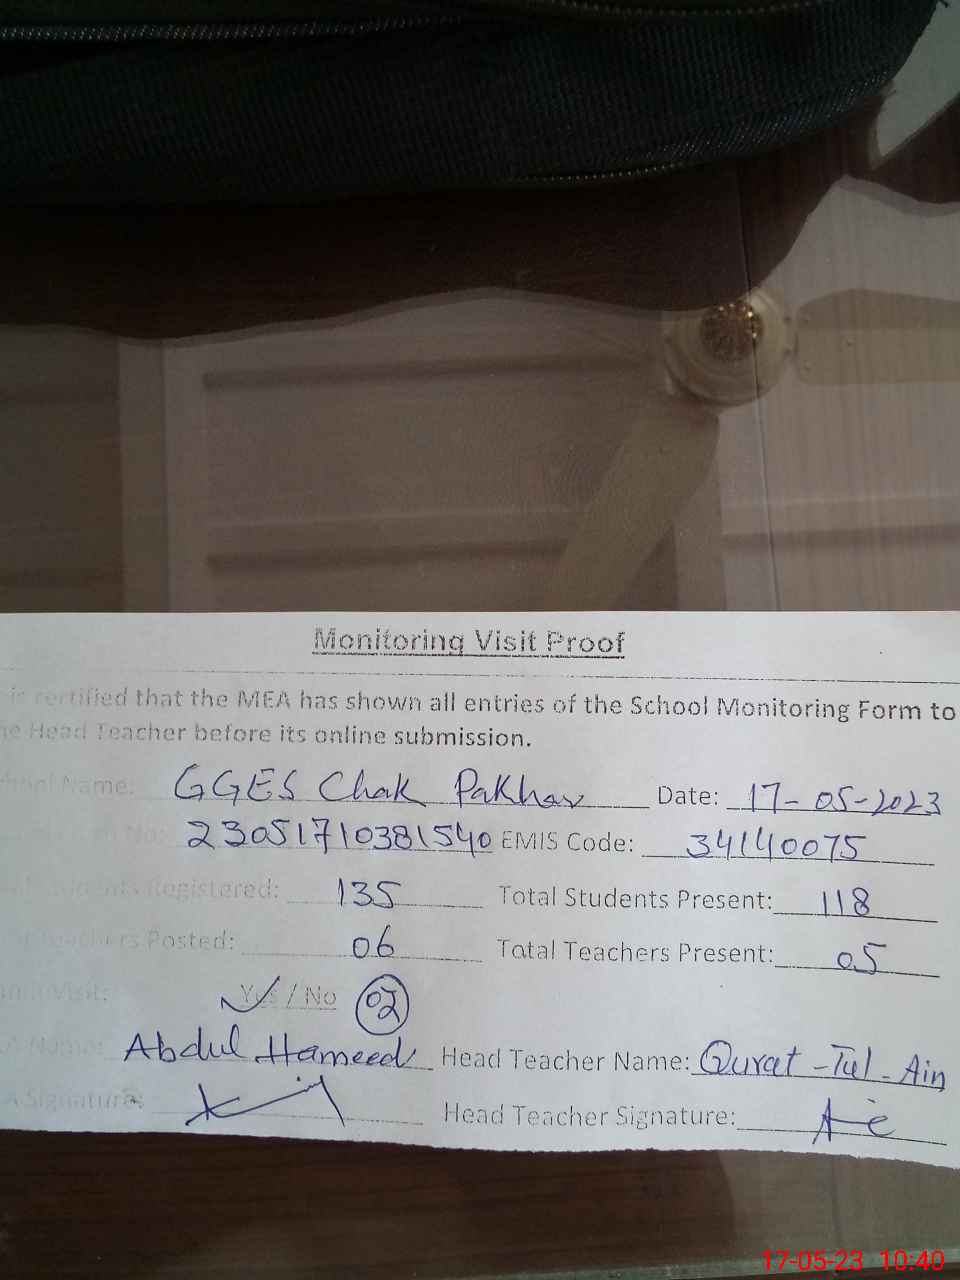 Monitoring Visit Proof
is certified that the MEA has shown all entries of the School Monitoring Form to
he Head Teacher before its online submission.
hool Name: GGES Chak Pakhar Date: 17-05-2023
23051710381540 EMIS Code: 34140075
Registered: 135 Total Students Present: 118
Teachers Posted: 06 Total Teachers Present: 05
Visit: Yes / No 02
A Name: Abdul Hameed Head Teacher Name: Qurat-Tul-Ain
A Signature: Head Teacher Signature:
17-05-23 10:40